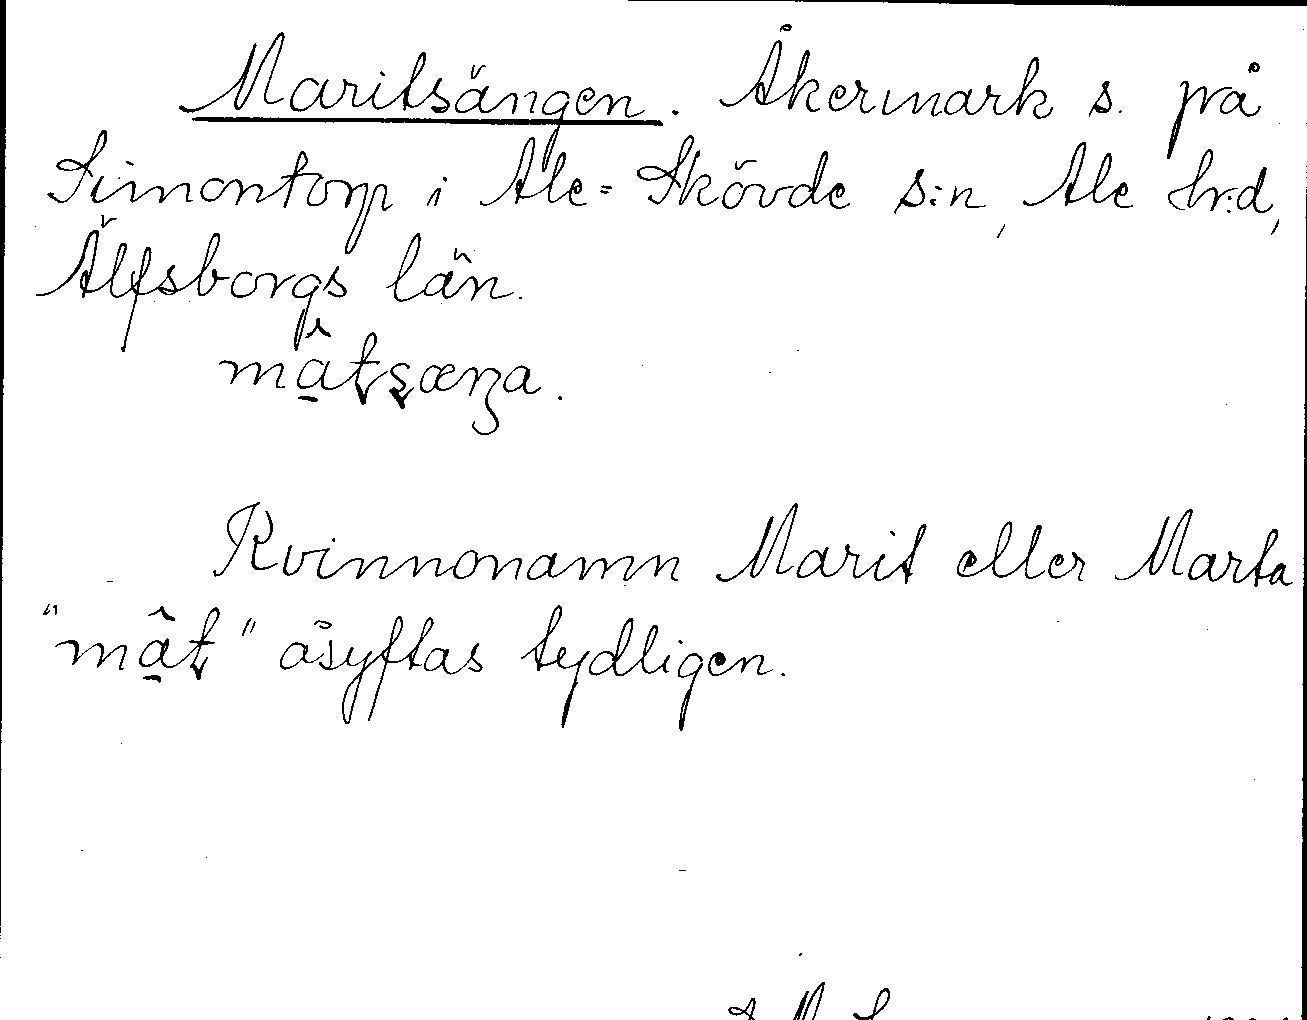 Maritsängen. Åkermark s. på
Simontorp i Ale-Skövde s:n, Ale hr:d,
Älfsborgs län.
mâ̱tsæŋa.
Kvinnonamn Marit eller Marta
"mâ̱t" åsyftas tydligen.